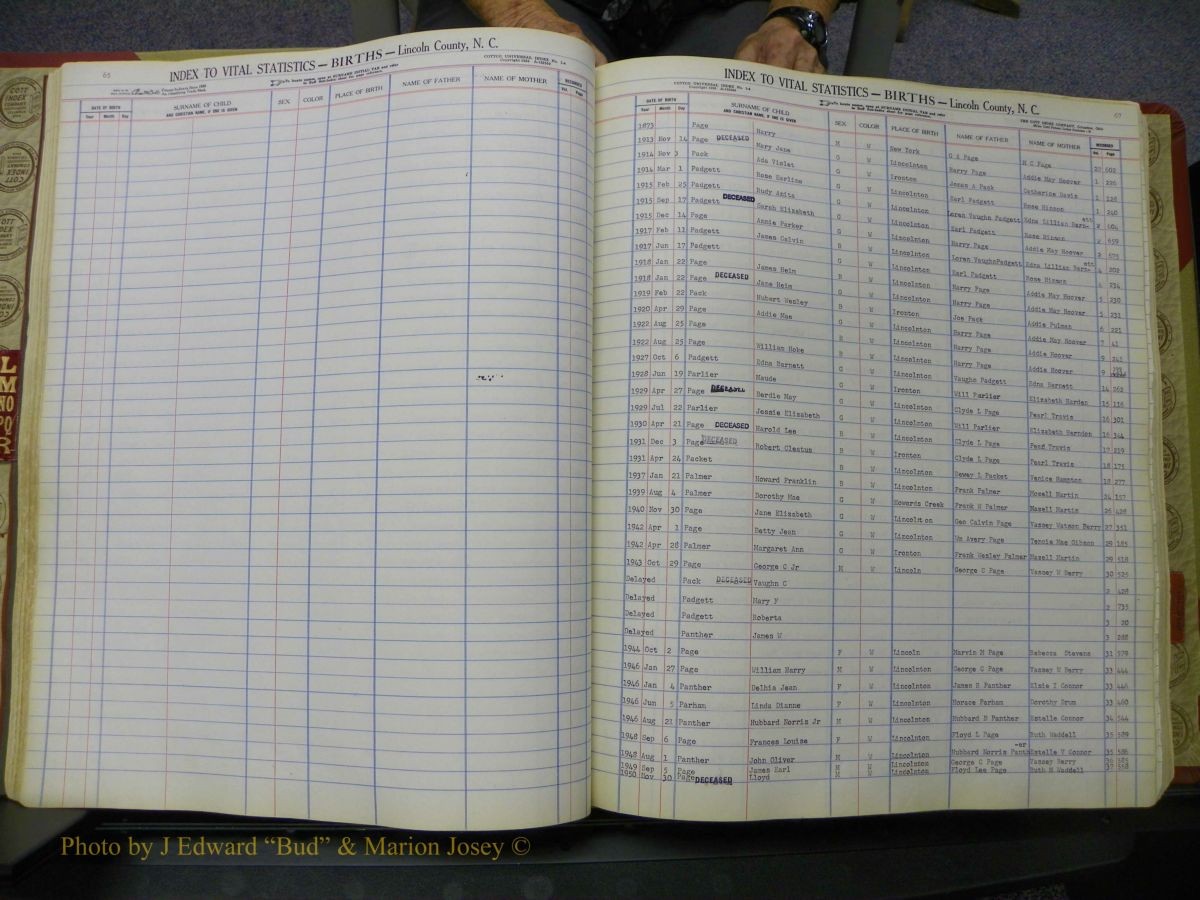 65
INDEX TO VITAL STATISTICS — BIRTHS — Lincoln County, N. C.
COTT'S UNIVERSAL INDEX No. 1-A
DATE OF BIRTH
Year Month Day
SURNAME OF CHILD
AND CHRISTIAN NAME, IF ONE IS GIVEN
SEX
COLOR
PLACE OF BIRTH
NAME OF FATHER
NAME OF MOTHER
RECORDED
Vol. Page
INDEX TO VITAL STATISTICS — BIRTHS — Lincoln County, N. C.
67
DATE OF BIRTH
Year Month Day
SURNAME OF CHILD
AND CHRISTIAN NAME, IF ONE IS GIVEN
SEX
COLOR
PLACE OF BIRTH
NAME OF FATHER
NAME OF MOTHER
RECORDED
Vol. Page
1873 Page Harry M W New York G A Page M C Page 22 602
1913 Nov 14 Page DECEASED Mary Jane G W Lincolnton Harry Page Addie May Hoover 1 226
1914 Nov 3 Pack Ada Violet G W Ironton James A Pack Catharine Davis 1 228
1914 Mar 1 Padgett Rose Earline G W Lincolnton Earl Padgett Rose Hinson 1 240
1915 Feb 25 Padgett Rudy Azita G W Lincolnton Loren Vaughn Padgett Edna Lillian
1915 Sep 17 Padgett DECEASED Sarah Elizabeth G W Lincolnton Earl Padgett Rose Hinson 2 659
1915 Dec 14 Page Annie Parker G W Lincolnton Harry Page Addie May Hoover 2 673
1917 Feb 11 Padgett James Calvin B W Lincolnton Loren Vaughn Padgett Edna Lillian 4 202
1917 Jun 17 Padgett G W Lincolnton Earl Padgett Rose Hinson 4 234
1918 Jan 22 Page James Heim B W Lincolnton Harry Page Addie May Hoover 5 230
1918 Jan 22 Page DECEASED Jane Heim G W Lincolnton Harry Page Addie May Hoover 5 231
1919 Feb 22 Pack Hubert Wesley B W Ironton Joe Pack Addie Pulman 6 221
1920 Apr 29 Page Addie Mae G W Lincolnton Harry Page Addie May Hoover 7 41
1922 Aug 25 Page B W Lincolnton Harry Page Addie Hoover 9 245
1922 Aug 25 Page William Hoke B W Lincolnton Harry Page Addie Hoover 9
1927 Oct 6 Padgett Edna Barnett G W Lincolnton Vaughn Padgett Edna Barnett 14 262
1928 Jun 19 Parlier Maude G W Ironton Will Parlier Elizabeth Harden 15 116
1929 Apr 27 Page DECEASED Berdie May G W Lincolnton Clyde L Page Pearl Travis 16 301
1929 Jul 22 Parlier Jessie Elizabeth G W Lincolnton Will Parlier Elizabeth Herndon 16 344
1930 Apr 21 Page DECEASED Harold Lee B W Lincolnton Clyde L Page Pearl Travis 17 219
1931 Dec 3 Page DECEASED Robert Clestus B W Ironton Clyde L Page Pearl Travis 18 175
1931 Apr 24 Packet B W Lincolnton Dewey L Packet Venice Hampton 18 277
1937 Jan 21 Palmer Howard Franklin B W Lincolnton Frank Palmer Mozell Martin 24 157
1939 Aug 4 Palmer Dorothy Mae G W Howards Creek Frank W Palmer Mozell Martin 26 428
1940 Nov 30 Page Jane Elizabeth G W Lincolnton Geo Calvin Page Yassey Watson Berry 27 351
1942 Apr 1 Page Betty Jean G W Lincolnton Wm Avery Page Tennie Mae Gibson 29 185
1942 Apr 28 Palmer Margaret Ann G W Ironton Frank Wesley Palmer Mozell Martin 29 518
1943 Oct 29 Page George C Jr M W Lincoln George C Page Yassey W Berry 30 525
Delayed Pack DECEASED Vaughn C 2 428
Delayed Padgett Mary F 2 735
Delayed Padgett Roberta 3 20
Delayed Panther James W 3 288
1944 Oct 2 Page F W Lincoln Marvin M Page Rebecca Stevens 31 579
1946 Jan 27 Page William Harry M W Lincolnton George C Page Yassey W Berry 33 444
1946 Jan 4 Panther Delhia Jean F W Lincolnton James H Panther Elsie I Connor 33 446
1946 Jun 5 Parham Linda Dianne F W Lincolnton Horace Parham Dorothy Drum 33 460
1946 Aug 21 Panther Hubbard Norris Jr M W Lincolnton Hubbard D Panther Estelle Connor 34 544
1948 Sep 6 Page Frances Louise F W Lincolnton Floyd L Page Ruth Waddell 35 589
1948 Aug 1 Panther John Oliver M W Lincolnton Hubbard Norris Panth-er Estelle V Connor 35 586
1949 Sep 5 Page James Earl M W Lincolnton George C Page Yassey Berry 36 585
1950 Nov 30 Page DECEASED Lloyd M W Lincolnton Floyd Lee Page Ruth M Waddell 37 558
Photo by J Edward “Bud” & Marion Josey ©